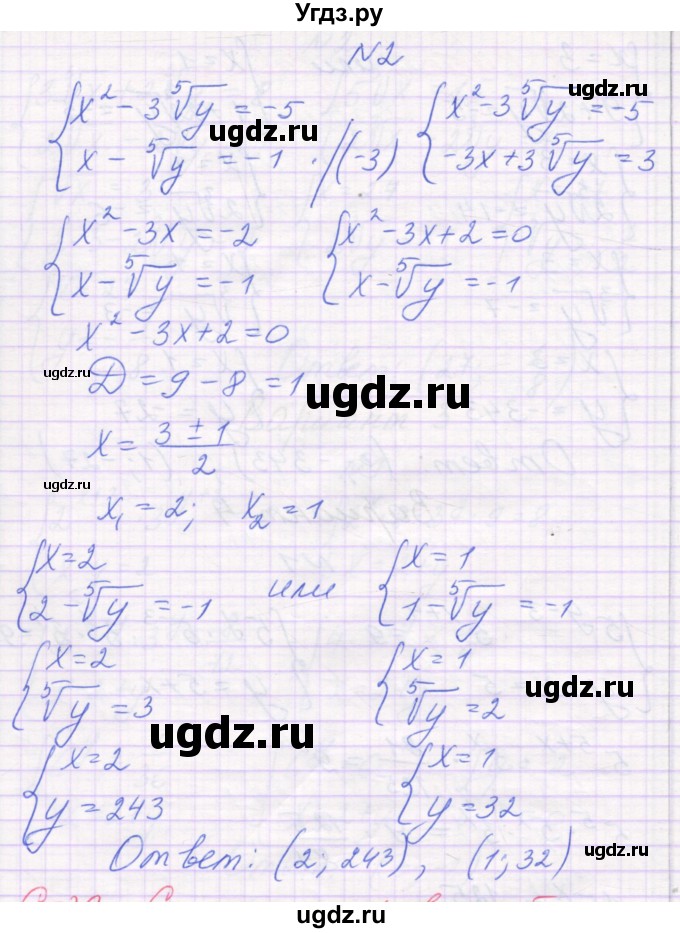 Угдз.ру
N2
{ x² - 3 ⁵√y = -5
{ x - ⁵√y = -1 · //(-3)
{ x² - 3 ⁵√y = -5
{ -3x + 3 ⁵√y = 3
ugdz.ru
{ x² - 3x = -2
{ x - ⁵√y = -1
{ x² - 3x + 2 = 0
{ x - ⁵√y = -1
x² - 3x + 2 = 0
ugdz.ru
D = 9 - 8 = 1
ugdz.ru
x = (3 ± 1)/2
ugdz.ru
x₁ = 2; x₂ = 1
{ x = 2
{ 2 - ⁵√y = -1
или
{ x = 1
{ 1 - ⁵√y = -1
{ x = 2
{ ⁵√y = 3
{ x = 1
{ ⁵√y = 2
ugdz.ru
ugdz.ru
{ x = 2
{ y = 243
{ x = 1
{ y = 32
Ответ: (2; 243), (1; 32)
ugdz.ru
ugdz.ru